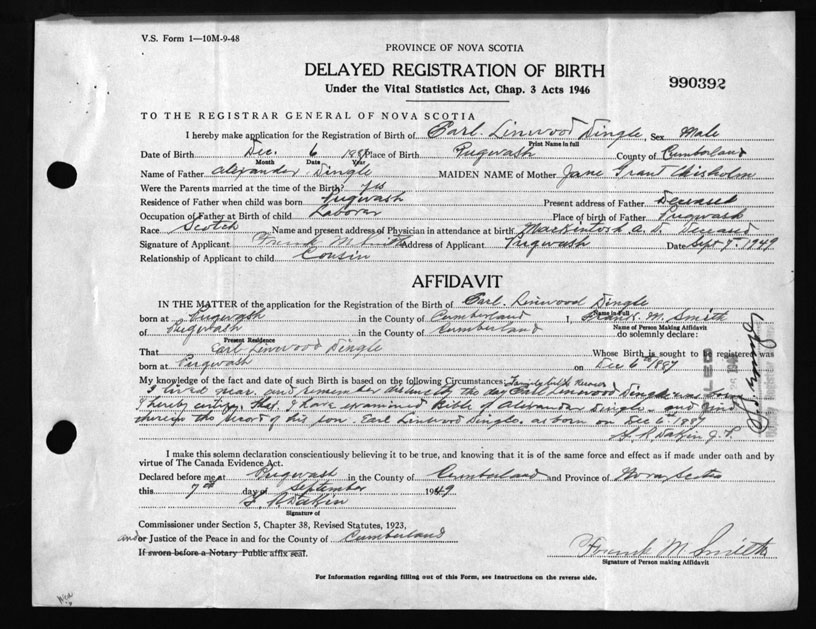 V.S. Form 1—10M-9-48
PROVINCE OF NOVA SCOTIA
DELAYED REGISTRATION OF BIRTH
990392
Under the Vital Statistics Act, Chap. 3 Acts 1946
TO THE REGISTRAR GENERAL OF NOVA SCOTIA
I hereby make application for the Registration of Birth of Earl Linwood Dingle, Sex Male
Print Name in full
Date of Birth Dec. 6 1887 Place of Birth Pugwash County of Cumberland
Month Date Year
Name of Father Alexander Dingle MAIDEN NAME of Mother Jane Grant Chisholm
Were the Parents married at the time of the Birth? yes
Residence of Father when child was born Pugwash Present address of Father Deceased
Occupation of Father at Birth of child Laborer Place of birth of Father Pugwash
Race Scotch Name and present address of Physician in attendance at birth Mackintosh A. D. Deceased
Signature of Applicant Frank M. Smith Address of Applicant Pugwash Date Sept 7. 1949
Relationship of Applicant to child Cousin
AFFIDAVIT
IN THE MATTER of the application for the Registration of the Birth of Earl. Linwood Dingle
Name in Full
born at Pugwash in the County of Cumberland I, Frank. M. Smith
Name of Person Making Affidavit
of Pugwash in the County of Cumberland do solemnly declare:
Present Residence
That Earl Linwood Dingle Whose Birth is sought to be registered was
born at Pugwash on Dec 6th 1887
My knowledge of the fact and date of such Birth is based on the following Circumstances:
I lived near, and remember distinctly the day Earl Linwood Dingle was born
I hereby certify, that I have examined Bible of Alexander Dingle. and find
therein the record of his son. Earl Linwood Dingle. as born on Dec 6. 1887
Dakin J. P.
I make this solemn declaration conscientiously believing it to be true, and knowing that it is of the same force and effect as if made under oath and by
virtue of The Canada Evidence Act.
Declared before me at Pugwash in the County of Cumberland and Province of Nova Scotia
this 7th day of September 1949
Dakin
Signature of
Commissioner under Section 5, Chapter 38, Revised Statutes, 1923,
and/or Justice of the Peace in and for the County of Cumberland
If sworn before a Notary Public affix seal.
Frank M Smith
Signature of Person making Affidavit
For Information regarding filling out of this Form, see Instructions on the reverse side.